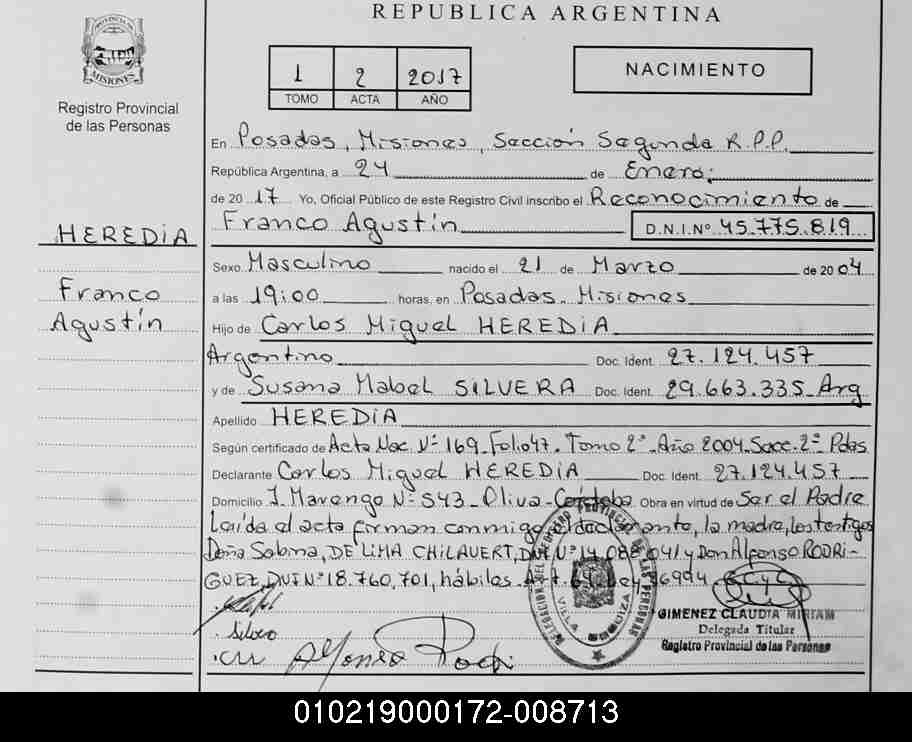 REPUBLICA ARGENTINA
PROVINCIA DE
MISIONES
Registro Provincial
de las Personas
1 2 2017
TOMO ACTA AÑO
NACIMIENTO
En Posadas, Misiones, Sección Segunda R.P.P.
República Argentina, a 24 de Enero;
de 2017 Yo, Oficial Público de este Registro Civil inscribo el Reconocimiento de
Franco Agustín D.N.I.Nº 45.775.819
HEREDIA
Franco
Agustín
Sexo Masculino nacido el 21 de Marzo de 2004
a las 19:00 horas, en Posadas. Misiones
Hijo de Carlos Miguel HEREDIA
Argentino Doc. Ident. 27.124.457
y de Susana Mabel SILVERA Doc. Ident. 29.663.335 Arg
Apellido HEREDIA
Según certificado de Acta Nac. Nº 169. Folio 47. Tomo 2º. Año 2004. Secc. 2º Pdas
Declarante Carlos Miguel HEREDIA Doc. Ident. 27.124.457
Domicilio J. Marengo Nº 543. Oliva-Córdoba Obra en virtud de Ser el Padre
Leída el acta firman conmigo el declarante, la madre, los testigos
Doña Sabina, DE LIMA CHILAVERT, DNI Nº 14.088.041 y Don Alfonso RODRI-
GUEZ, DNI Nº 18.760.701, hábiles
Silvera
Alfonso Rodri
DELEGACION DEL REGISTRO PROVINCIAL DE LAS PERSONAS
VILLA
GIMENEZ CLAUDIA MIRIAM
Delegada Titular
Registro Provincial de las Personas
010219000172-008713